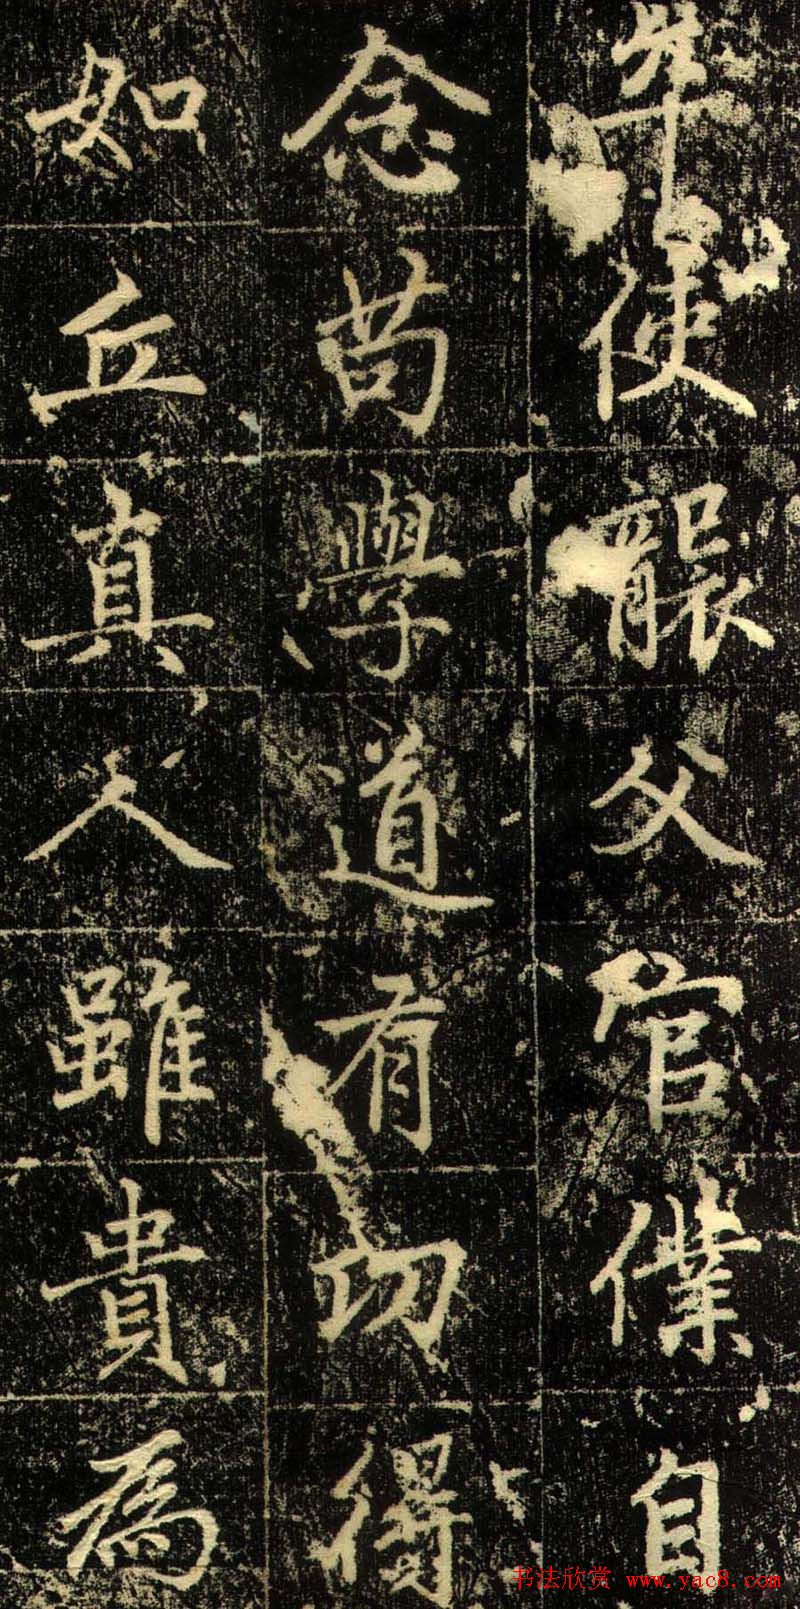 年使襲父官僕自
念苟學道有功得
如丘真人雖貴為
书法欣赏 www.yac8.com